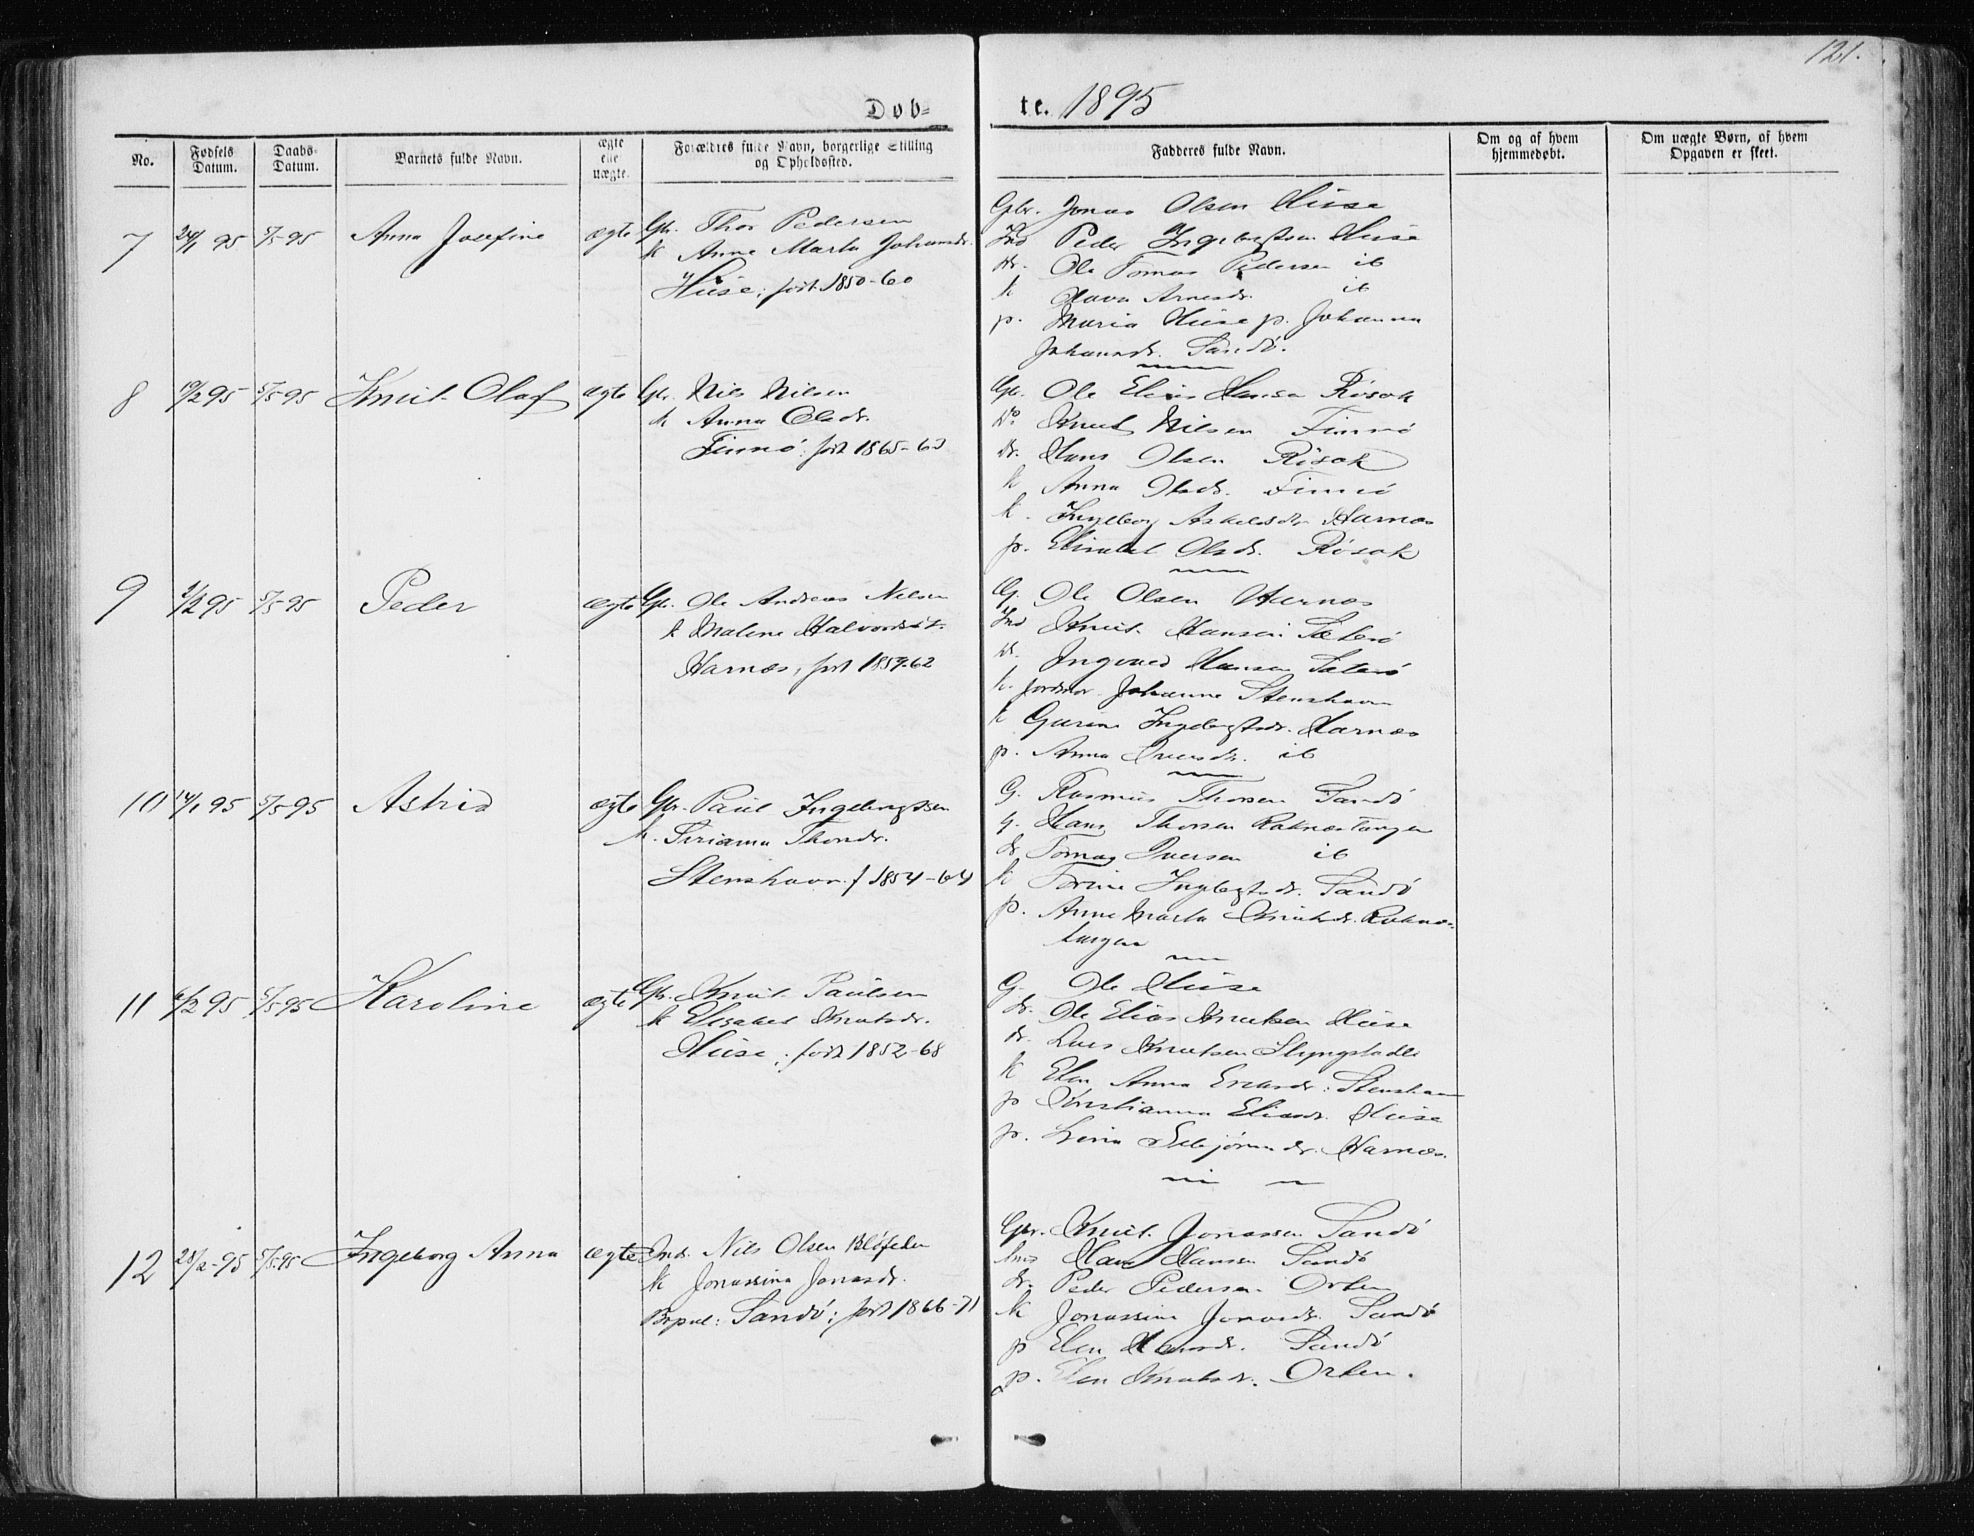 121.
Døb=
te. 1895
No.
Fødsels Datum.
Daabs- Datum.
Barnets fulde Navn.
ægte elle uægte.
Forældres fulde Navn, borgerlige Stilling
og Opholdssted.
Fadderes fulde Navn.
Om og af hvem
hjemmedøbt.
Om uægte Børn, af hvem
Opgaven er skeet.
7 24/1 95 5/5-95 Anna Josefine ægte Gbr. Thor Pedersen
k Anne Marta Johansdr.
Huse; født 1850-60
Gbr. Jonas Olsen Huse
Ind Peder Ingebrigtsen Huse
dr. Ole Tomas Pedersen ib
k Olava Arnesdr. ib
p. Maria Huse p. Johanna
Johansdr. Sandø.
8 19/2 95 5/5-95 Knut Olaf ægte Gbr. Nils Nilsen
k Anna Olsdr.
Finnø; født 1865-63
Gbr. Ole Elias Hansen Røsok
Do Knut Nilsen Finnø
dr. Hans Olsen Røsok
k Anna Olsdr. Finnø
k. Ingeborg Harnæs
p. Olsdr. Røsok
9 2/2 95 5/5-95 Peder ægte Gbr. Ole Andreas Nilsen
k Malene Halvorsdt.
Harnæs, født 1859-62
G. Ole Olsen Harnæs
Ind Knut Hansen Sæterø
dr. Ingvald Hansen Sæterø
k. Jordmor Johanne Stenshavn
k Gurine Ingebrigtsdr. Harnæs
p. Anna Iversdr. ib
10 14/1 95 5/5 95 Astrid ægte Gbr. Paul Ingebrigtsen
k. Sirianna Thorsdr.
Stenshavn f 1854-64
G. Rasmus Thorsen Sandø
g. Hans Thorsen Raknestangen
dr Tomas Iversen ib
k Torine Ingebrigtsdr. Sandø
p. Anne Marta Knutsdr. Raknes-
tangen
11 6/2 95 5/5 95 Karoline ægte Gbr. Knut Paulsen
k Elisabet Knutsdr.
Huse; født 1852-68
G. Ole Huse
dr. Ole Elias Knutsen Huse
dr. Lars Knutsen Slyngstadli
k Elen Anna Stenshavn
p Kristianna Eliasdr. Huse
p. Harnæs.
12 28/2-95 5/5 95 Ingeborg Anna ægte Ind. Nils Olsen
k Jonassina Jonasdr.
Bopæl: Sandø; født 1866-71
Gbr. Knut Jonassen Sandø
Ind Hans Hansen Sandø
dr. Peder Pedersen Orten
k Jonassina Jonasdr. Sandø
p Elen Hansdr. Sandø
p. Elen Knutsdr. Orten.